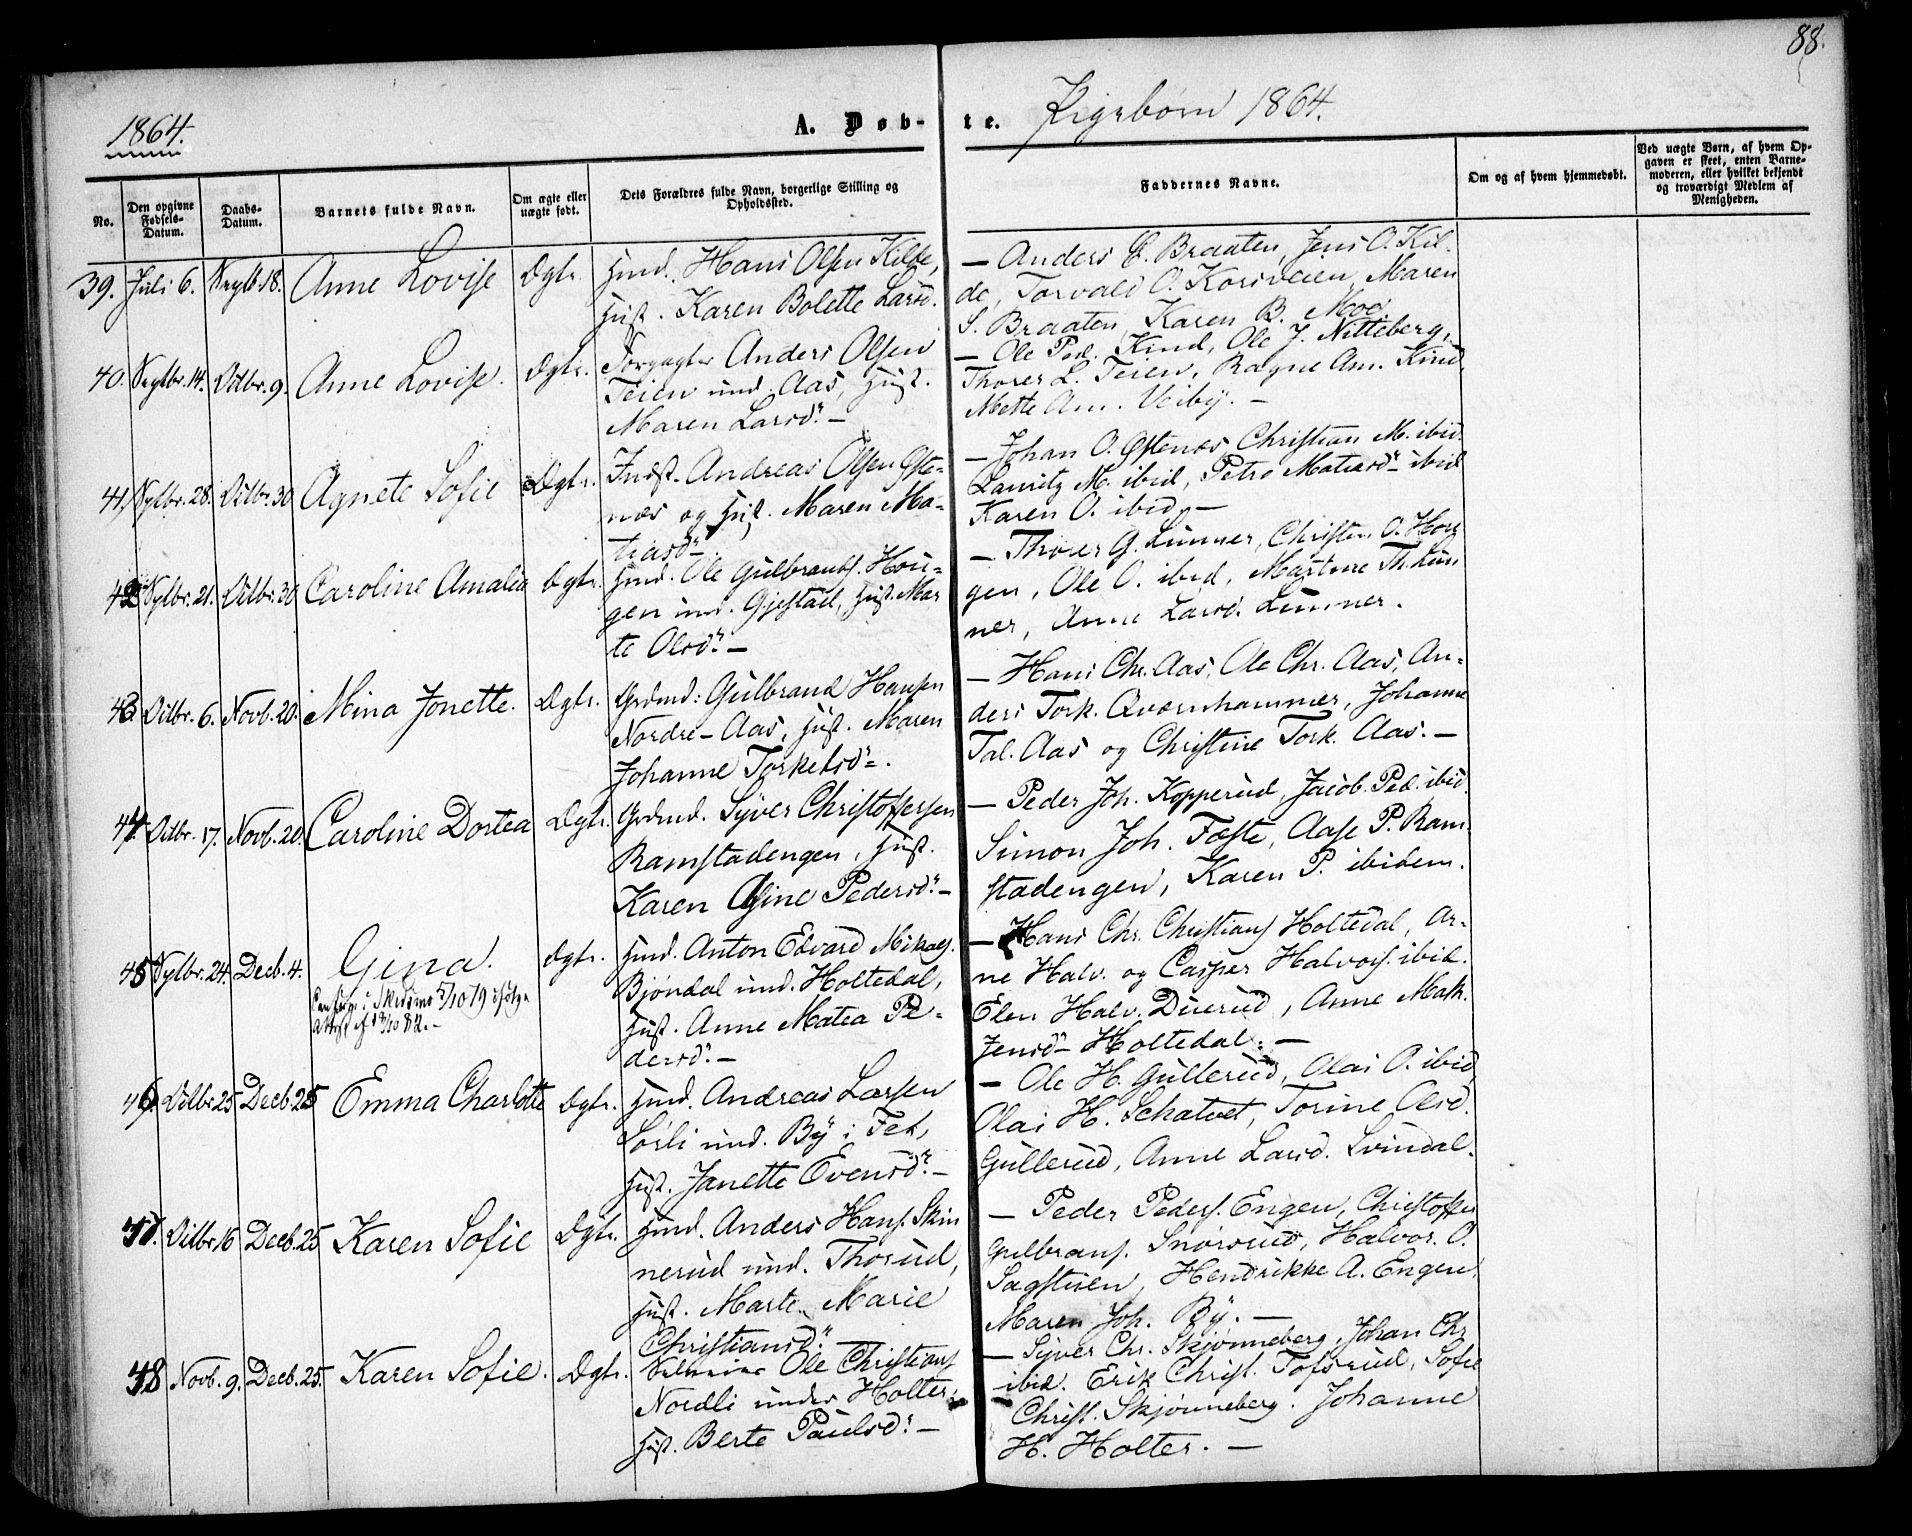 88.
1864.
A. Døb-
te.
Pigebørn 1864.
No.
Den opgivne Fødsels-Datum.
Daabs-Datum.
Barnets fulde Navn.
Om ægte eller uægte født.
Dets Forældres fulde Navn, borgerlige Stilling og Opholdssted.
Faddernes Navne.
Om og af hvem hjemmedøbt.
Ved uægte Børn, af hvem Opgaven er skeet, enten Barnemoderen, eller hvilket bekjendt og troværdigt Medlem af Menigheden.
39. Juli 6. Septb. 18. Anne Lovise Dgtr. Husmd. Hans Olsen Kilde,
Hust. Karen Bolette Larsd.
— Anders E. Braaten, Jens O. Kil-
de, Torvald O. Korsveien, Maren
S. Braaten, Karen B. Moe.
40. Septbr. 14. Octbr. 9. Anne Lovise. Dgtr. Forpagter Anders Olsen
Teien und. Aas, Hust.
Maren Larsd. —
— Ole Ped. Kind, Ole J. Nitteberg,
Thorer L. Teien, Ragne Am. Kind,
Mette Am. Veiby. —
41. Septbr. 28. Octbr. 30 Agnete Sofie Dgtr. Indst. Andreas Olsen Øste-
næs og Hust. Maren Ma-
tiasd.
— Johan O. Østenæs Christian M. ibid.
Lauritz M. ibid, Petra Matiasd. ibid
Karen O. ibid. —
42 Septbr. 21. Octbr. 30 Caroline Amalia Dgtr. Husmd. Ole Gulbrands. Hou-
gen und. Gjestad, Hust. Mar
te Olsd. —
— Thorer G. Linner, Christen O. Hou
gen, Ole O. ibid, Martine Th. Lin
ner, Anne Larsd. Linner.
43 Octbr. 6. Novb. 20. Mina Jonette. Dgtr. Grdmd: Gulbrand Hansen
Nordre-Aas, Hust. Maren
Johanne Torkelsd.
— Hans Chr. Aas, Ole Chr. Aas, An-
ders Tork. Qværnhammer, Johanne
Tal. Aas og Christine Tork. Aas. —
44 Octbr. 17. Novb. 20. Caroline Dortea Dgtr. Grdmd. Syver Christoffersen
Ramstadengen, Hust.
Karen Gine Pedersd. —
— Peder Joh. Kopperud, Jacob Ped. ibid.
Simon Joh. Fæste, Aase P. Ram-
stadengen, Karen P. ibidem.
45 Septbr. 24. Decb. 4. Gina. Dgtr. Husmd. Anton Edvard Mikaels.
i Skedsmo 5/10 79 ifølge
Attest af
Bjøndal und. Holtedal,
Hust. Anne Matea Pe-
dersd. —
— Hans Chr. Christians Holtedal, Ar-
ne Halv. og Casper Halvors. ibid.
Elen Halv. Duerud, Anne Math.
Jensd. Holtedal. —
46. Octbr. 25 Decb. 25 Emma Charlotte Dgtr. Husmd. Andreas Larsen
Sørli und. By i Fet,
Hust. Janette Evensd. —
— Ole H. Gullerud, Olai O. ibid,
Olai H. Schatvet, Torine Olsd.
Gullerud, Anne Larsd. Svindal.
47. Octbr. 16 Decb. 25 Karen Sofie Dgtr. Husmd. Anders Hans. Skin
nerud und. Thorud,
Hust. Marte Marie
Christiansd.
— Peder Peders. Engen, Christoffer
Gulbrans. Snorsrud, Halvor. O.
Sagstuen, Hendrikke A. Engen,
Maren Joh. By. —
48 Novb. 9. Decb. 25. Karen Sofie. Dgtr. Selveier Ole Christians.
Nordli under Holter,
Hust. Berte Paulsd. —
— Syver Chr. Skjønneberg, Johan Chr
ibid. Erik Christ. Tofsrud, Sofie
Christ. Skjønneberg. Johanne
H. Holter. —